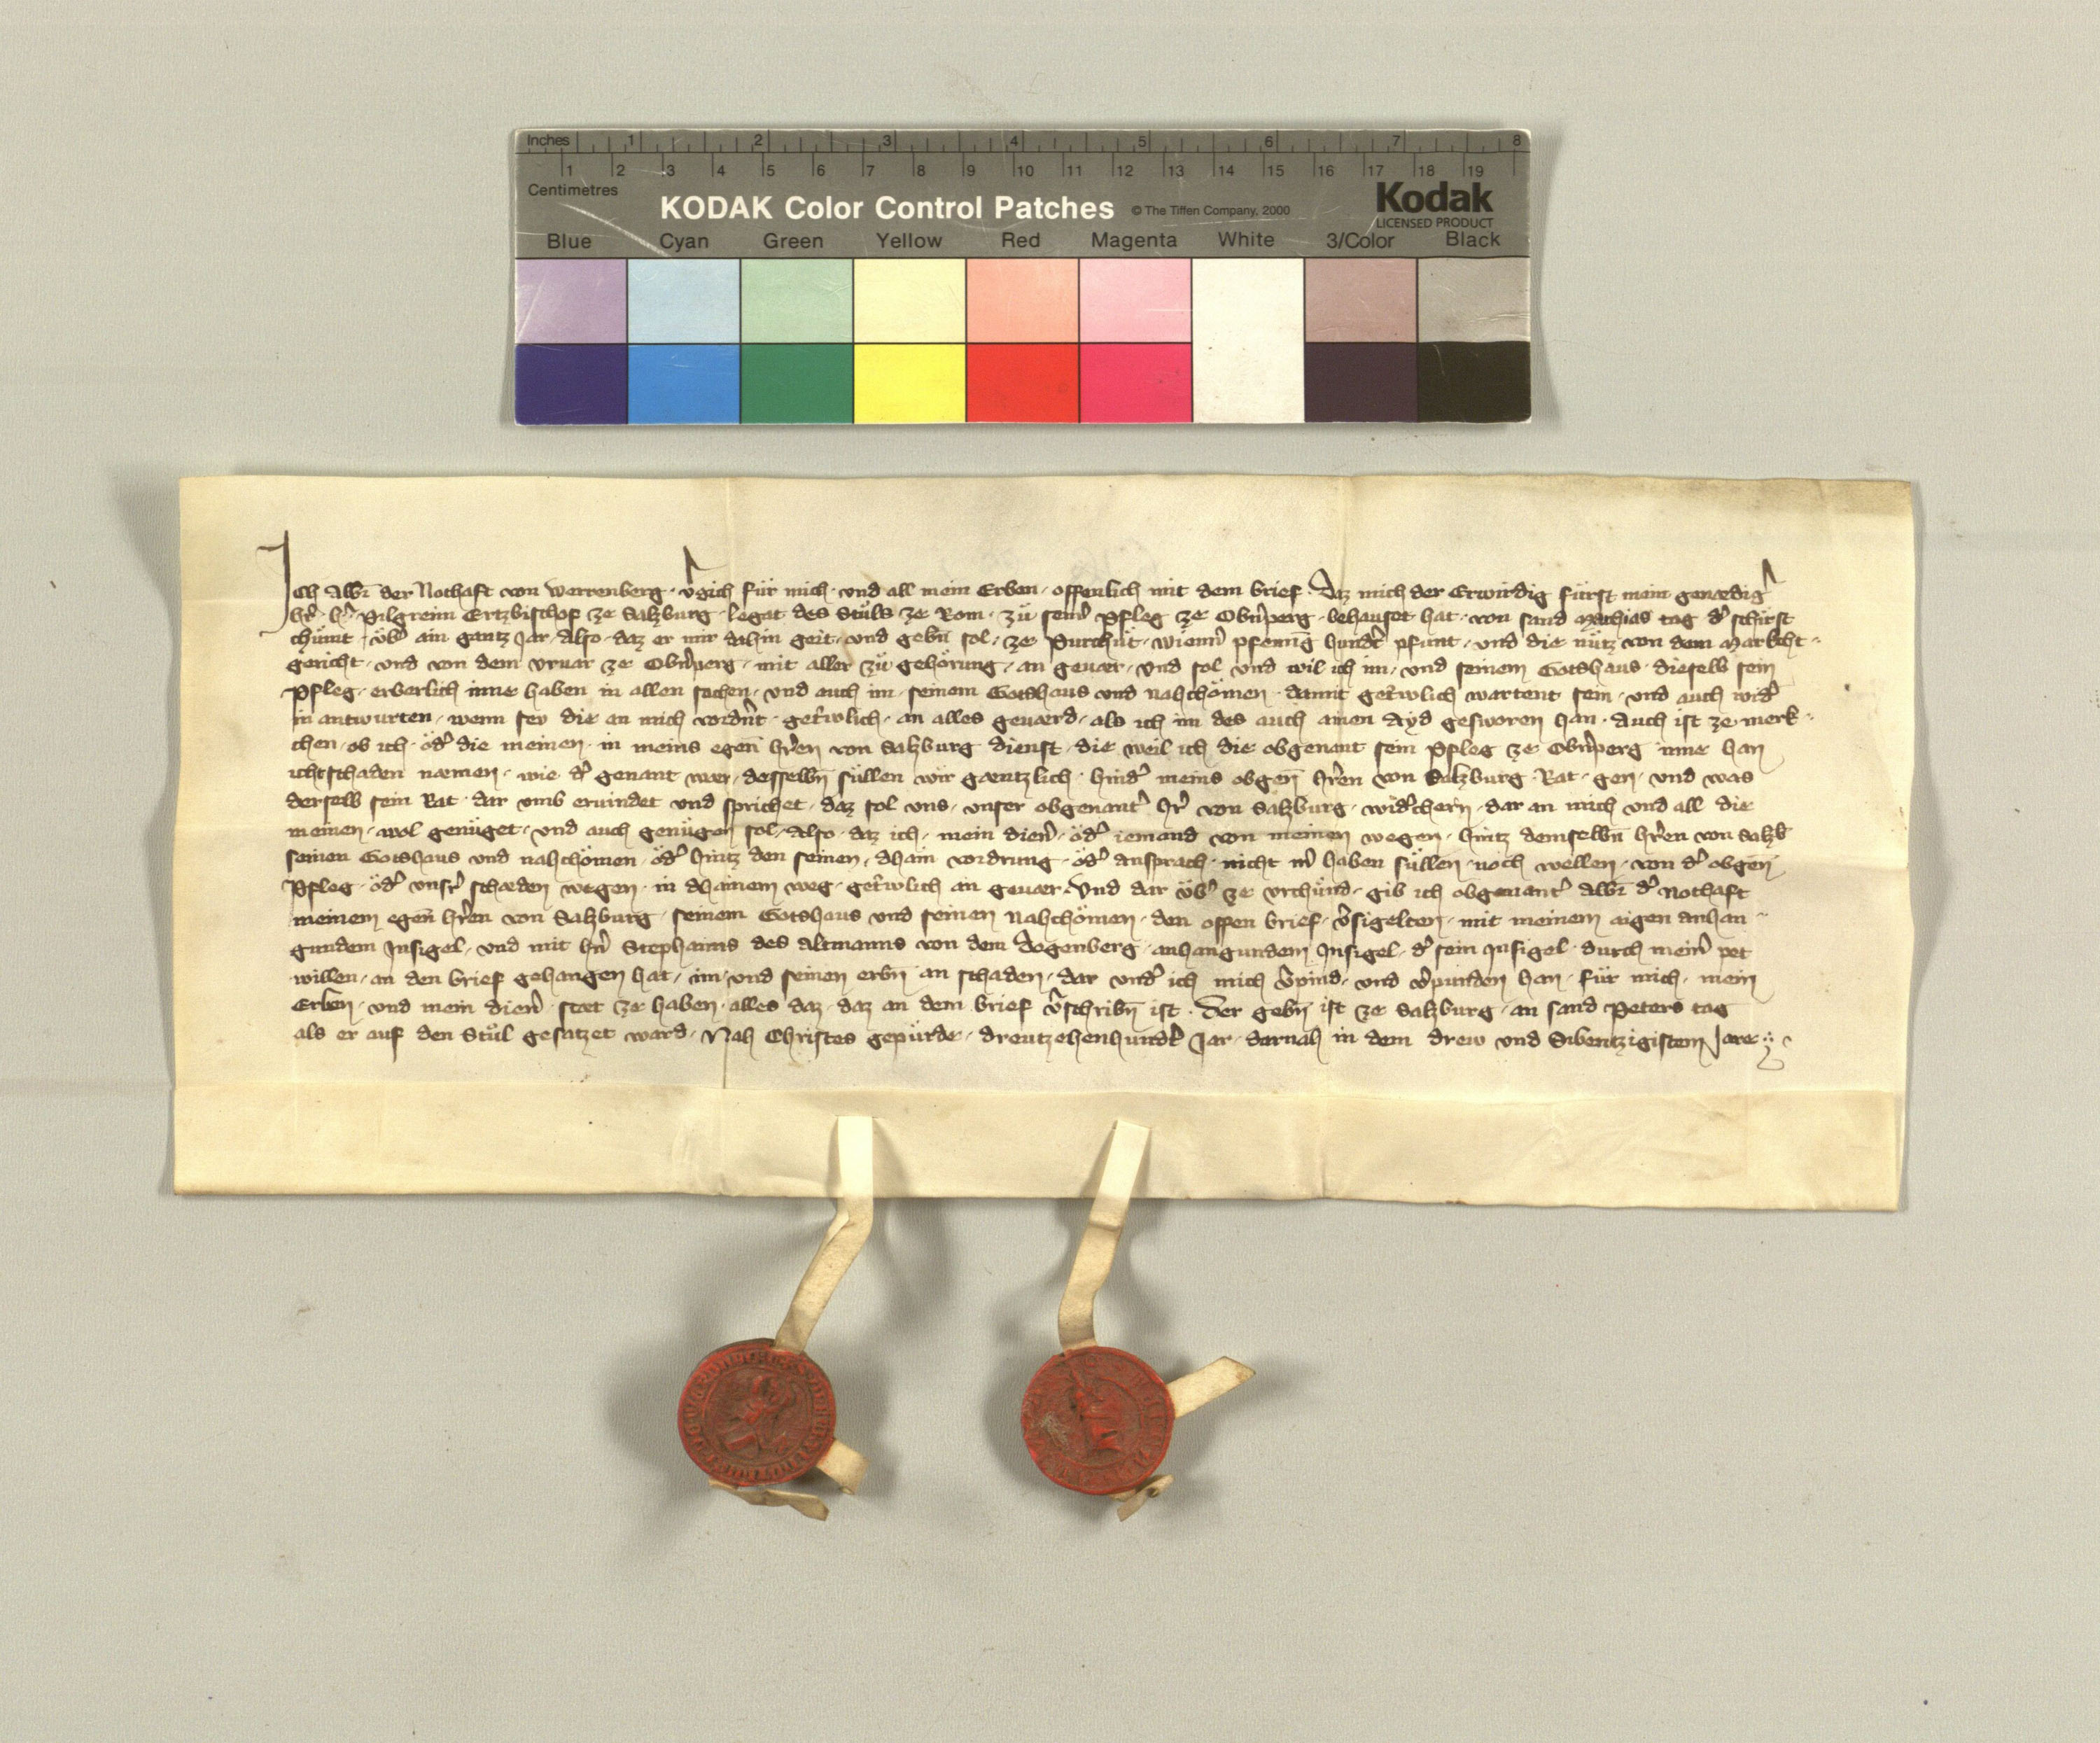 Inches 1 2 3 4 5 6 7 8
1 2 3 4 5 6 7 8 9 10 11 12 13 14 15 16 17 18 19
Centimetres
KODAK Color Control Patches © The Tiffen Company, 2000 Kodak
LICENSED PRODUCT
Blue Cyan Green Yellow Red Magenta White 3/Color Black
Ich Albr̄ der Nothaft von Werrenberg · v̓gich für mich · und all mein Erben · offenlich mit dem brief · Daz mich der Erwirdig fürst mein genædig̓
her̓ · h̓r · Pilgreim Ertzbischof ze Salzburg · legat des Stůls ze Rom · zů sein̓ Pfleg ze Obn̓perg · behauset hat · von sand Mathias tag d̓ schirst
chümt · üb̓ ain gantz Jar · Also · daz er mir dahin geit · und gebn̄ sol · ze Purchůt · wienn̓ pfenni̅g hundt̓ pfunt · und die nütz von dem Markcht ·
gericht · und von dem vruar ze Obn̓perg · mit aller zů gehörung · an geuær · und sol und wil ich im · und seinem Gotshaus · dieselb sein
Pfleg · erberlich inne haben in allen sachen · und auch im · seinem Gotshaus und nahchömen · damit getr̓wlich wartent sein · und auch wid̓
in antwurten · wenn sev die an mich vordn̓t · getr̓wlich · an alles geuærd · als ich im des auch ainen Ayd gesworen han · Auch ist ze merk ·
chen · ob ich · öd̓ die meinen · in meins egen̄ hr̓en von Salzburg dienst · die weil ich die obgenant sein Pfleg ze Obn̓perg inne han
icht schaden næmen · wie d̓ genant wær · desselbn̄ süllen wir gæntzlich · hind̓ meins obgen̄ Hr̓en von Salzburg · Rat · gen · und was
derselb sein Rat · dar umb ervindet und sprichet · daz sol uns · unser obgenant̓ Hr̓ von Salzburg · wid̓chern · dar an mich und all die
meinen · wol genüget · und auch genügen sol · Also · daz ich · mein dien̓ · öd̓ iemand von meinen wegen · hintz demselbn̄ hr̓en von Salzb̓
seinen Gotshaus und nahchömen · öd̓ hintz den seinen · dhain vordrung · öd̓ ansprach · nicht m̓ haben süllen · noch wellen · von d̓ obgen̄
Pfleg · öd̓ unsr̓ schæden wegen · in dhainem weg · getr̓wlich an geuær · Und dar üb̓ ze vrchünd · gib ich obgenant̓ Albr̄ d̓ Nothaft
meinem egen̄ hr̓en von Salzburg · seinem Gotshaus und seinen Nahchömen · den offen brief · v̓sigelten · mit meinem aigen anhan ·
gundem Insigel · und mit hn̓ Stephanns des Altmanns von dem Dogenberg · anhangundem Insigel · d̓ sein Insigel · durch mein̓ pet
willen · an den brief gehangen hat · im · und seinen erbn̄ an schaden · dar und̓ ich mich v̓pind · und v̓punden han · für mich · mein
Erben · und mein dien̓ · stæt ze haben · alles daz · daz an dem brief v̓schribn̄ ist · Der gebn̄ ist ze Salzburg · an sand Peters tag
als er auf den Stůl gesatzet ward · Nah Christes gepürde · dreutzehenhundt̓ Jar · darnah in dem drew und Sibentzigistem Jare